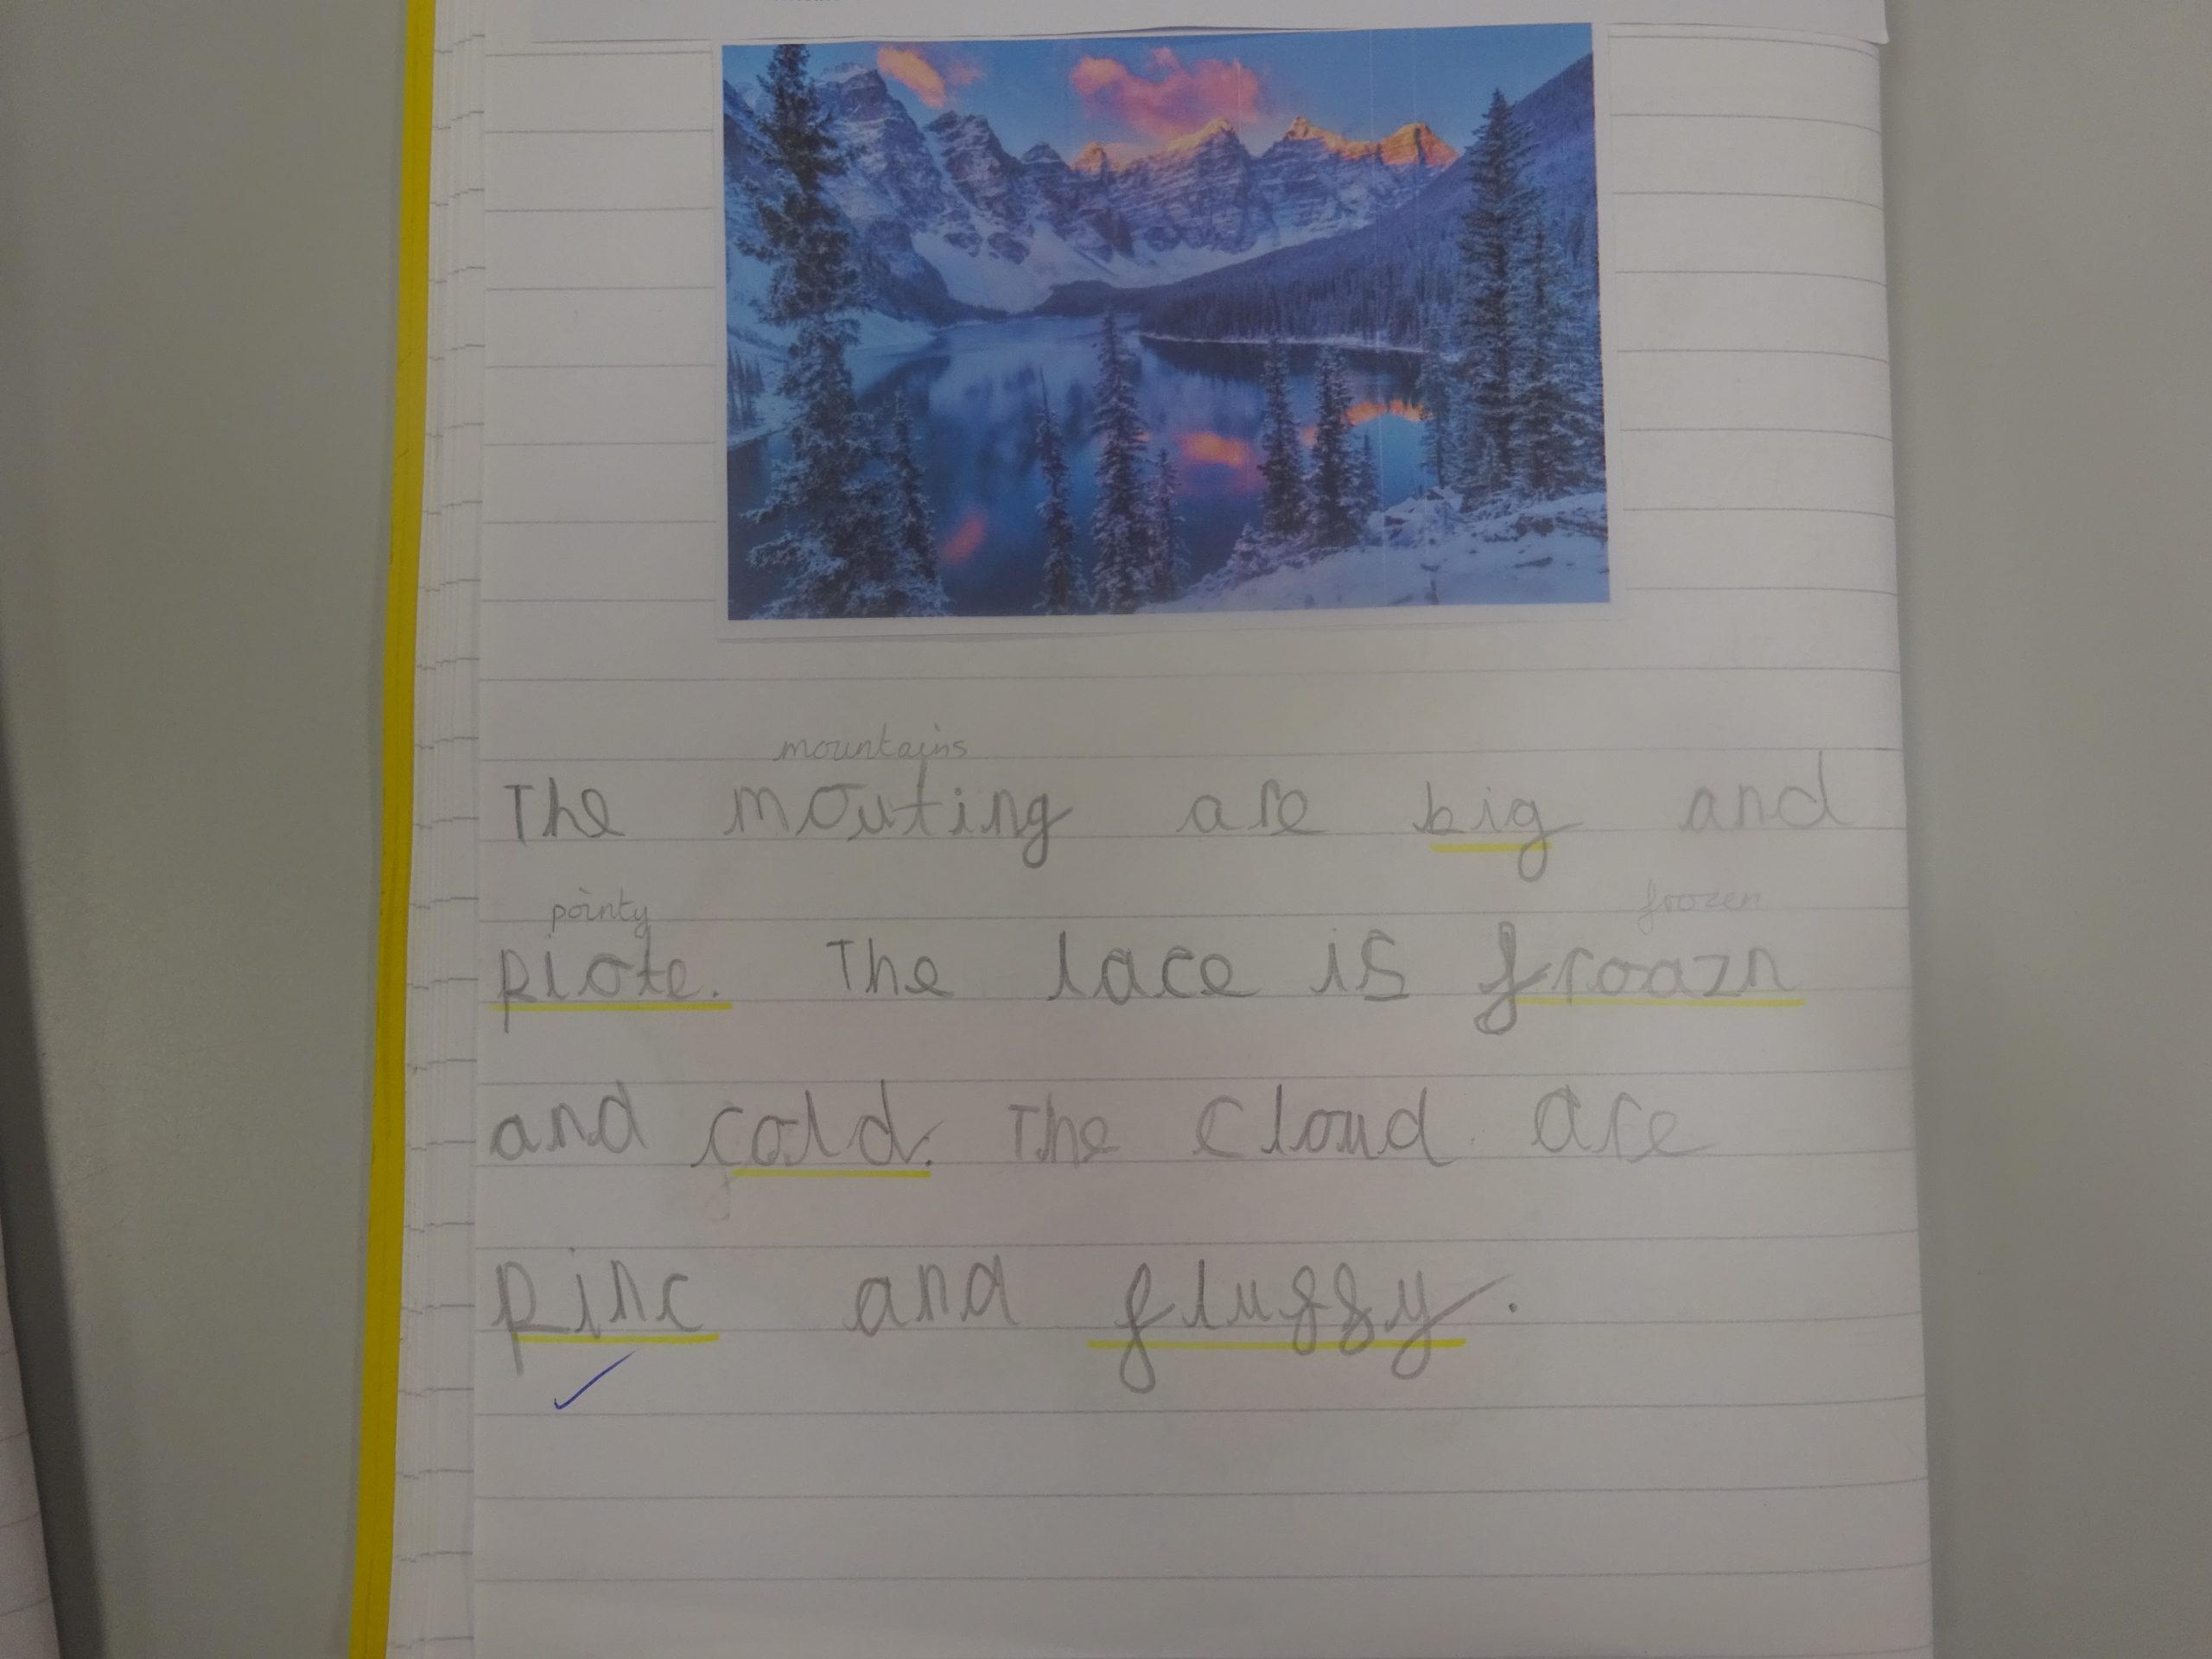 mountains
The mouting are big and
pointy froozen
piote. The lace is froazn
and cold. The cloud are
pinc and fluffy.